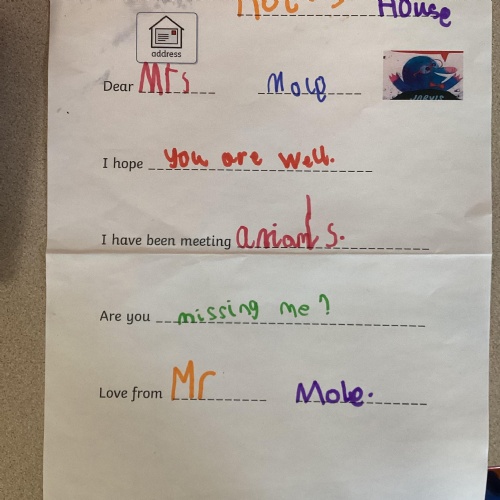 House
address
Dear Mrs Mole
JARVIS
I hope you are well.
I have been meeting
Are you missing me?
Love from Mr Mole.